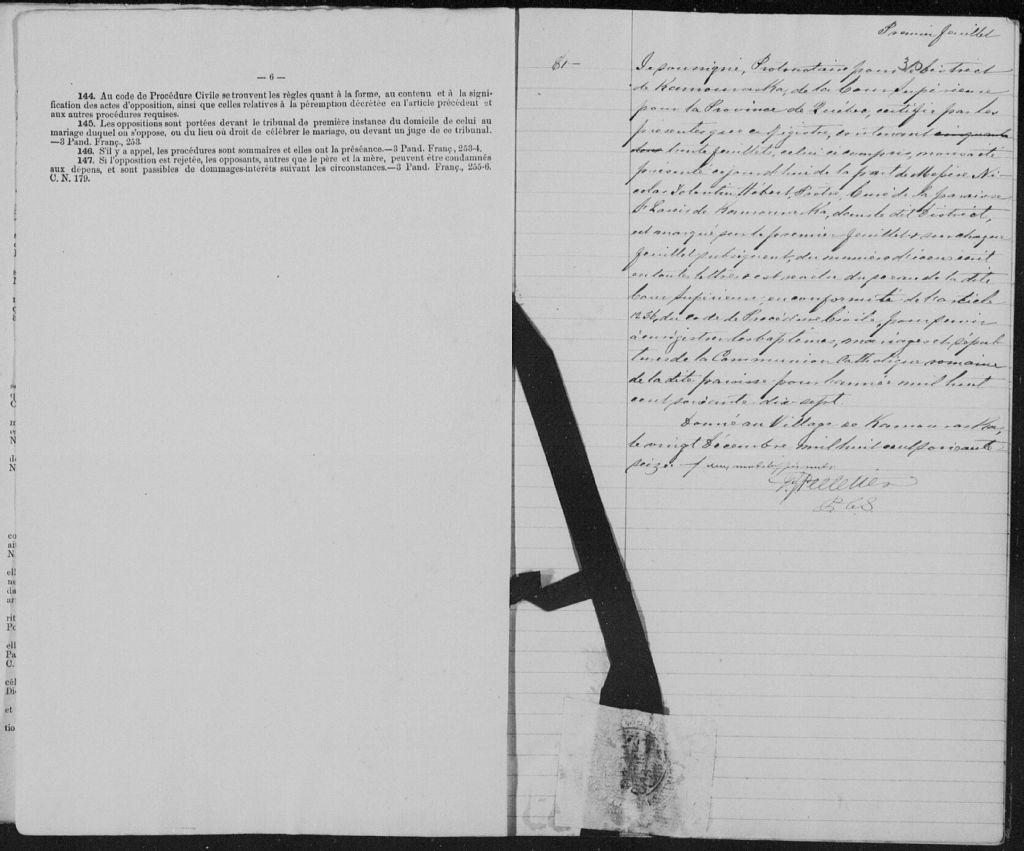 — 6 —
144. Au code de Procédure Civile se trouvent les règles quant à la forme, au contenu et à la signi-
fication des actes d'opposition, ainsi que celles relatives à la péremption décrétée en l'article précédent et
aux autres procédures requises.
145. Les oppositions sont portées devant le tribunal de première instance du domicile de celui au
mariage duquel on s'oppose, ou du lieu où droit de célébrer le mariage, ou devant un juge de ce tribunal.
—3 Pand. Franç, 253.
146. S'il y a appel, les procédures sont sommaires et elles ont la préséance.—3 Pand. Franç, 253-4.
147. Si l'opposition est rejetée, les opposants, autres que le père et la mère, peuvent être condamnés
aux dépens, et sont passibles de dommages-intérêts suivant les circonstances.—3 Pand. Franç, 255-6.
C. N. 179.
co
ait
N
ell
ne
da
ar
rit
Po
ell
Pa
C.
cél
Di
et
tio
Premier feuillet
81 —
Je soussigné, Protonotaire pour le District
de Kamouraska, de la Cour Supérieure
pour la Province de Québec, certifie par les
présentes que ce registre, contenant cinquante
trente feuillets, celui ci compris, nous a été
présenté ce jourd'hui de la part de Messire Ni-
colas Tolentin Hébert, Prêtre, Curé de la paroisse
St Louis de Kamouraska, dans le dit District,
est marqué sur le premier feuillet & sur chaque
feuillet subséquent, du numéro d'iceux écrit
en toutes lettres & est revêtu du sceau de la dite
Cour Supérieure, en conformité de l'article
1236, du code de Procédure Civile, pour servir
à enrégistrer les baptêmes, mariages et sépul-
tures de la Communion Catholique romaine
de la dite paroisse pour l'année mil huit
cent soixante-dix-sept.
Donné au Village de Kamouraska,
le vingt Décembre mil huit cent soixante-
seize
Pelletier
P. C. S.